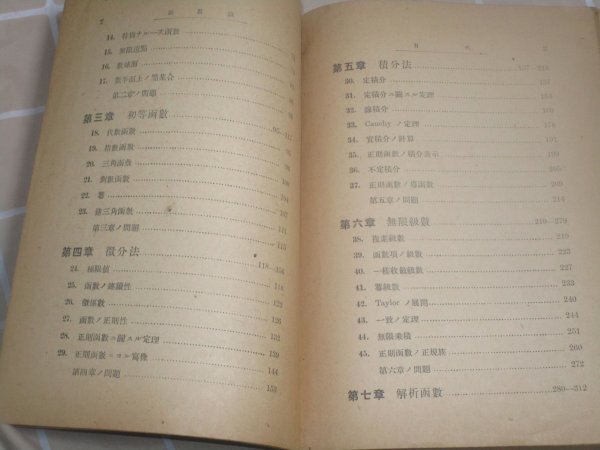 2
14. 特異ナル一次函数
15. 無限遠點
16. 數球面
17. 數平面上ノ點集合
第二章ノ問題
第三章 初等函數
18. 代數函數
19. 指數函數
20. 三角函數
21. 對數函數
22. 冪
23. 逆三角函數 107
第三章ノ問題 115
第四章 微分法 118—156
24. 極限値 118
25. 函數ノ連續性 122
26. 微係數 126
27. 函數ノ正則性 132
28. 正則函數ニ關スル定理 139
29. 正則函數ニヨル寫像 144
第四章ノ問題 153
第五章 積分法
30. 定積分
31. 定積分ニ關スル定理
32. 線積分
33. Cauchy ノ定理
34. 實積分ノ計算 191
35. 正則函數ノ積分表示 199
36. 不定積分 205
37. 正則函數ノ導函數 209
第五章ノ問題 214
第六章 無限級數 219—279
38. 複素級數 219
39. 函數項ノ級數 223
40. 一樣收斂級數 227
41. 冪級數 233
42. Taylor ノ展開 240
43. 一致ノ定理 244
44. 無限乘積 251
45. 正則函數ノ正規族 260
第六章ノ問題 272
第七章 解析函數 280—312